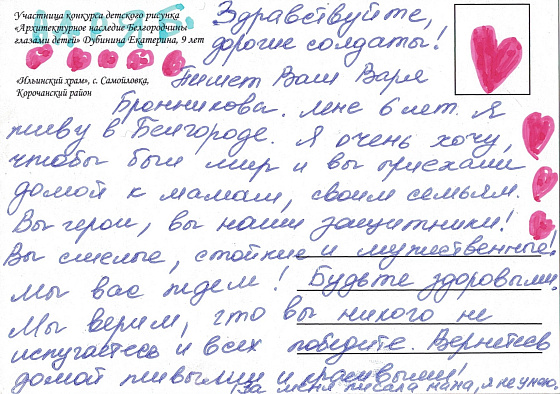 Участница конкурса детского рисунка
«Архитектурное наследие Белгородчины
глазами детей» Дубинина Екатерина, 9 лет
«Ильинский храм», с. Самойловка,
Корочанский район
Здравствуйте,
дорогие солдаты!
Пишет Вам Варя
Бронникова. Мне 6 лет. Я
живу в Белгороде. Я очень хочу,
чтобы был мир и вы приехали
домой к мамам, своим семьям.
Вы герои, вы наши защитники!
Вы смелые, стойкие и мужественные!
Мы вас ждем! Будьте здоровыми.
Мы верим, что вы никого не
испугаетесь и всех победите. Вернетесь
домой живыми и красивыми!
За меня писала мама, я не умею.